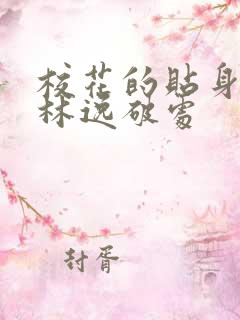 校花的贴身
林逸破处
封胥